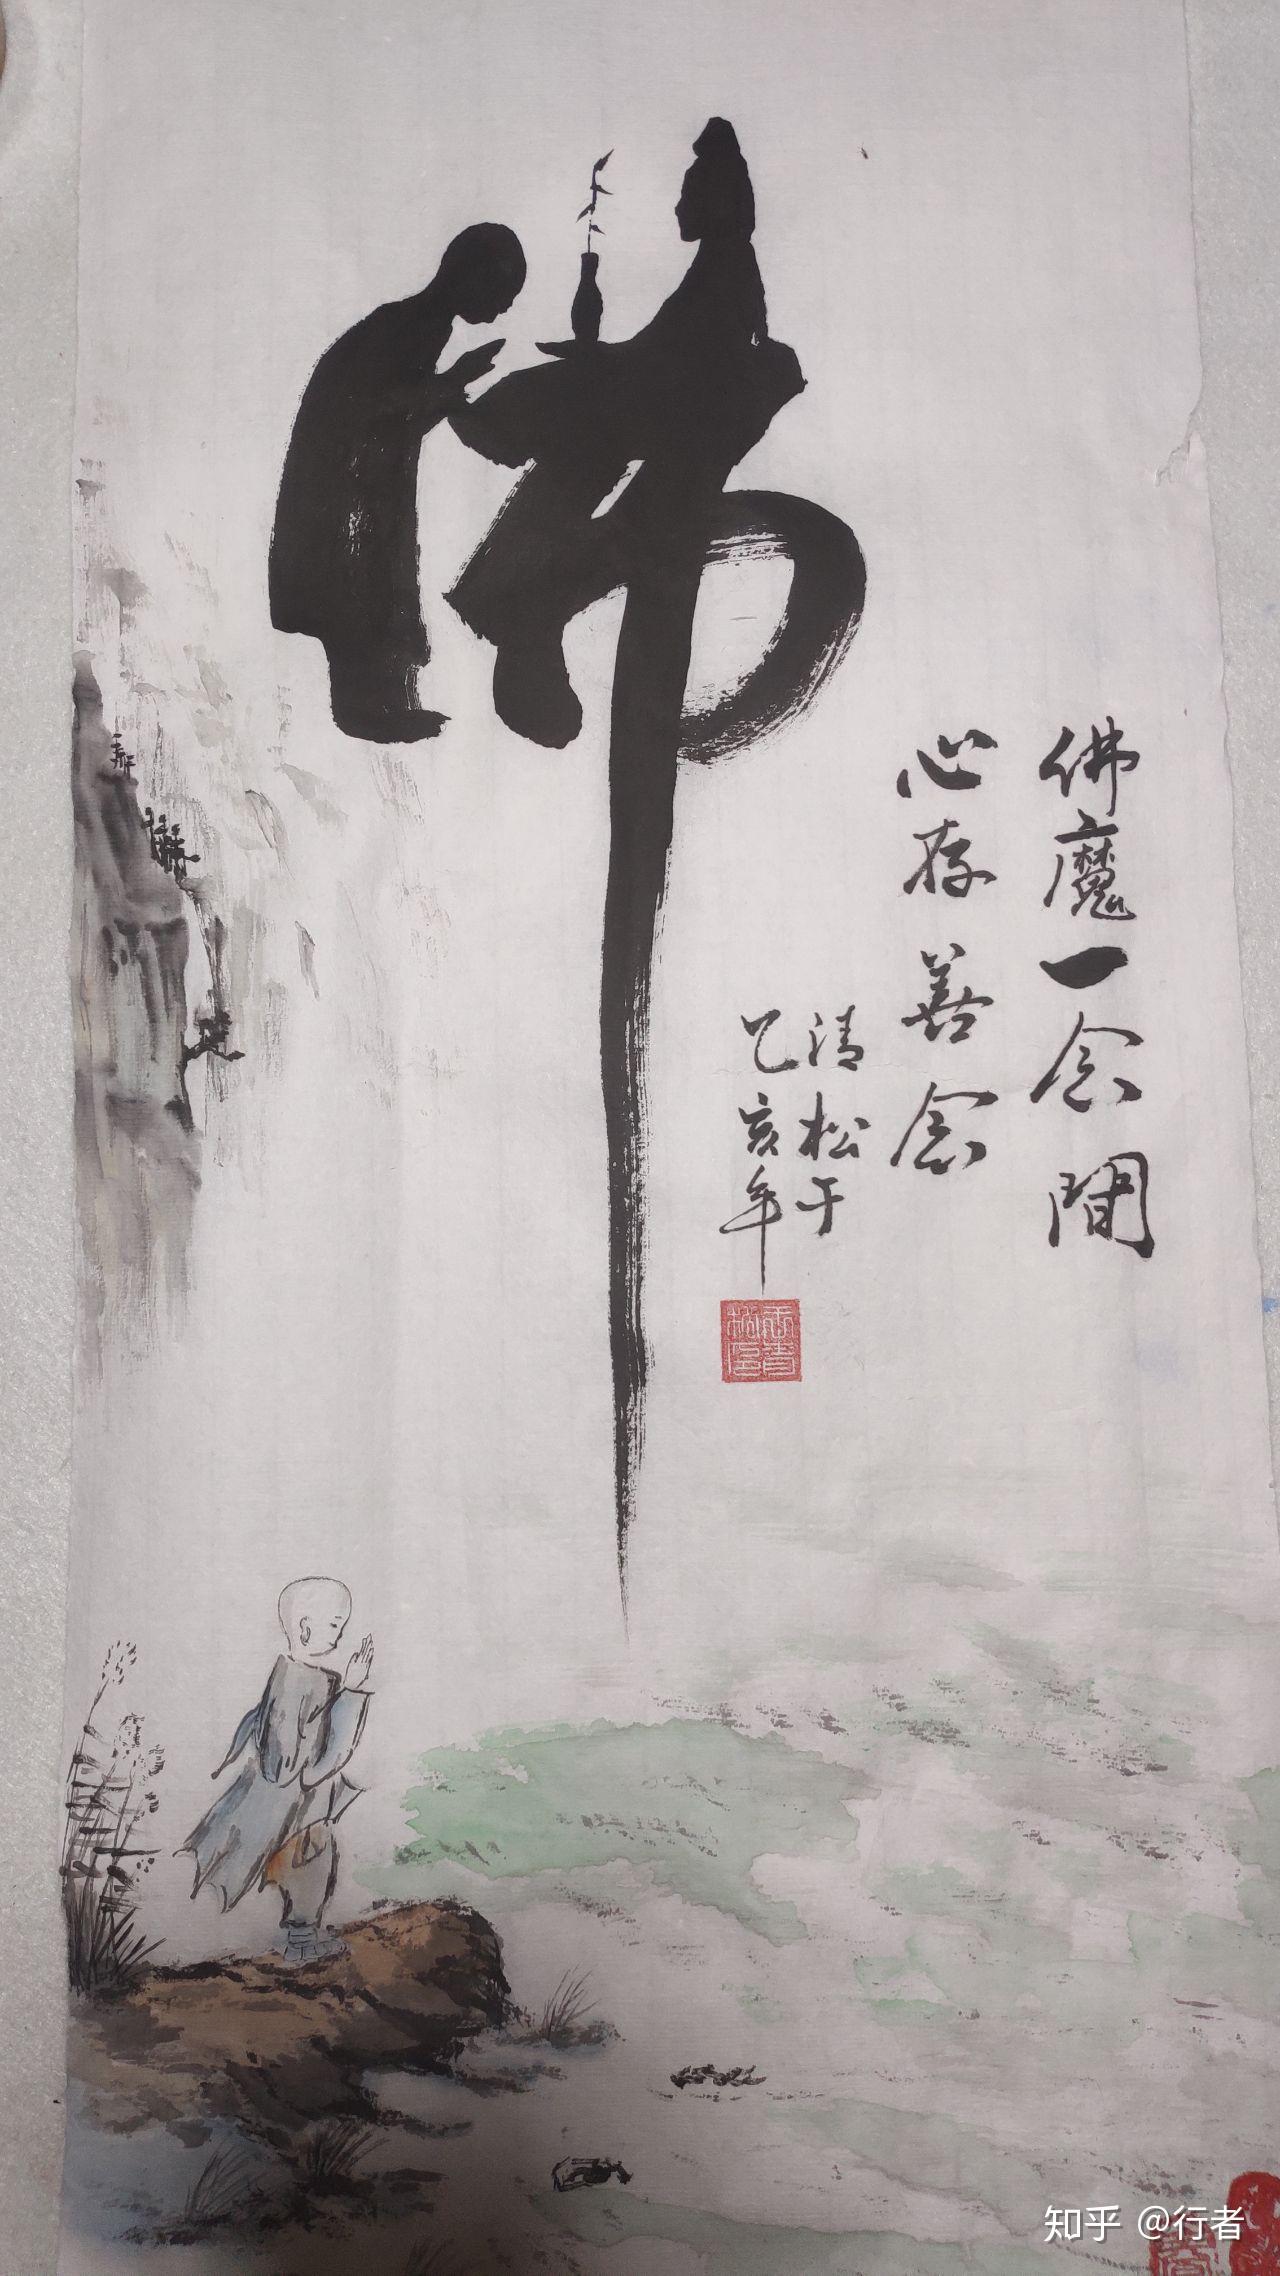 佛
佛魔一念間
心存善念
清松于
乙亥年
知乎 @行者